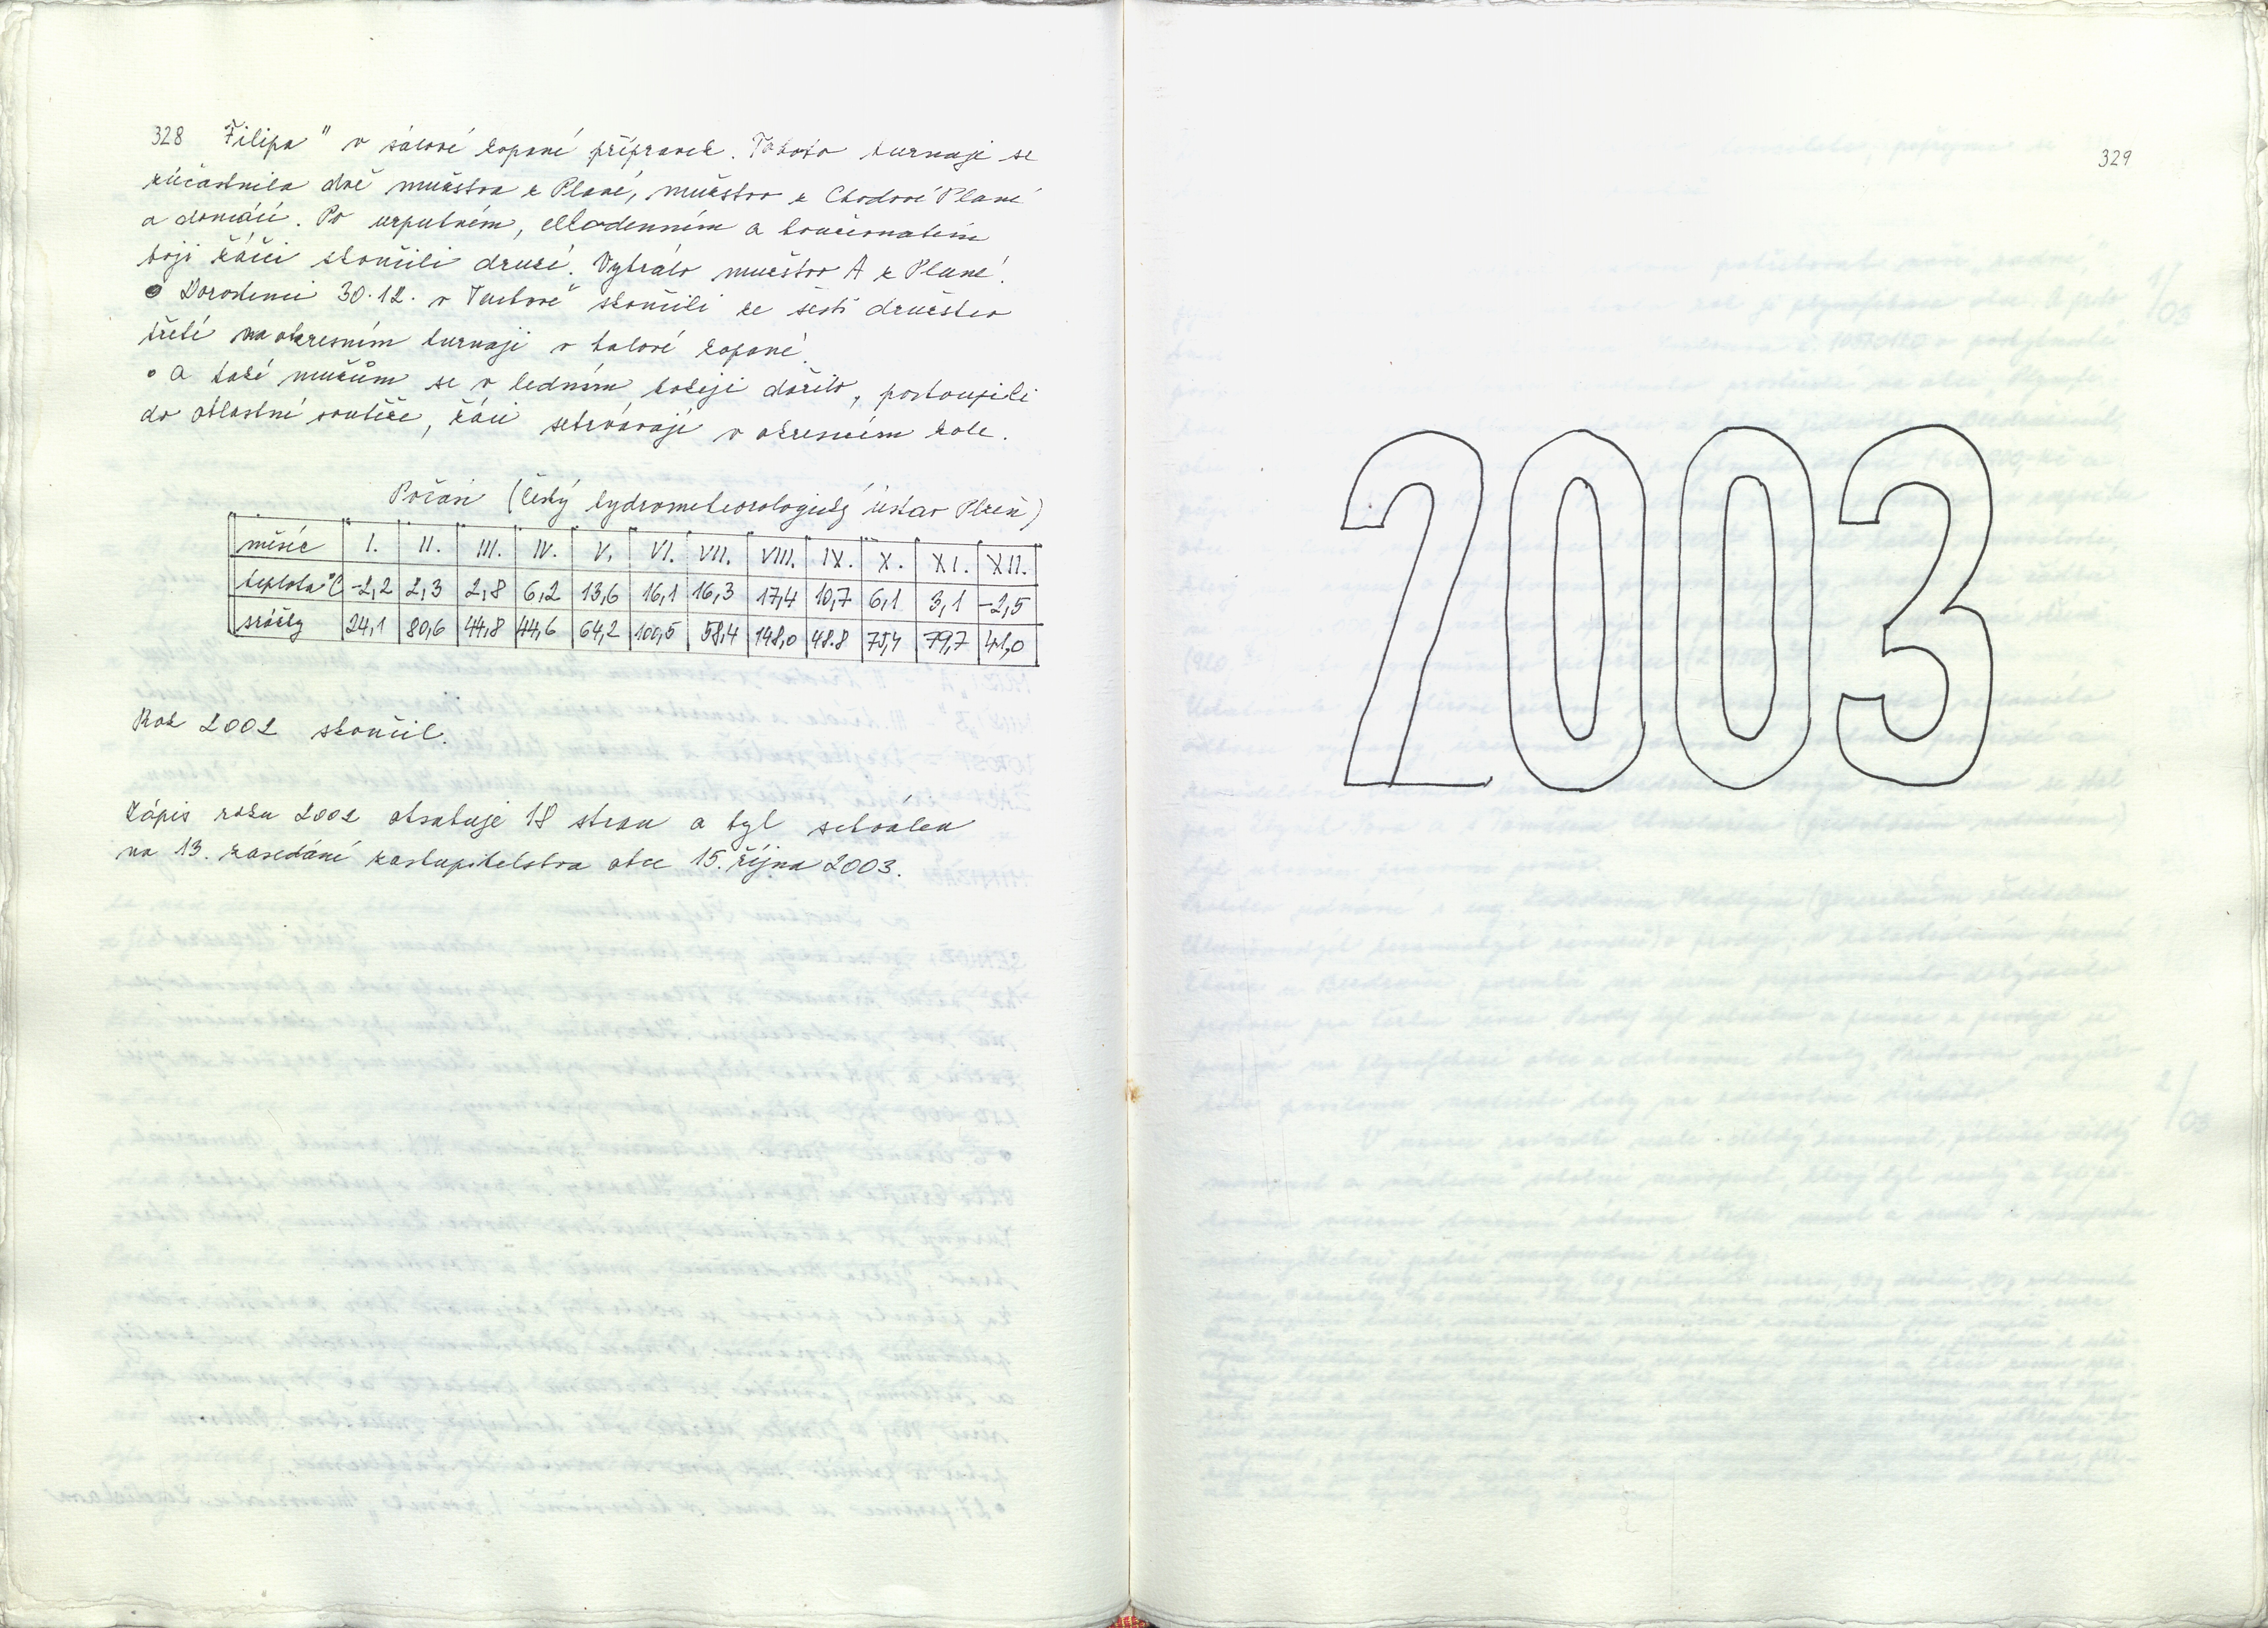 328 Filipa" v sálové kopané přípravek. Tohoto turnaje se
zúčastnila dvě mužstva z Plané, mužstvo z Chodové Plané
a domácí. Po urputném, celodenním a
boji žáci skončili druzí. Vyhrálo mužstvo A z Plané.
• Dorostenci 30.12. v Tachově skončili ze šesti družstev
třetí na okresním turnaji v halové kopané.
• a také mužům se v ledním hokeji dařilo, postoupili
do oblastní soutěže, žáci setrvávají v okresním kole.
Počasí (Český hydrometeorologický ústav Plzeň)
měsíc I. II. III. IV. V. VI. VII. VIII. IX. X. XI. XII.
teplota °C -2,2 2,3 2,8 6,2 13,6 16,1 16,3 17,4 10,7 6,1 3,1 -2,5
srážky 24,1 80,6 44,8 44,6 64,2 100,5 58,4 148,0 48.8 75,4 79,7 41,0
Rok 2002 skončil.
Zápis roku 2002 obsahuje 18 stran a byl schválen
na 13. zasedání zastupitelstva obce 15. října 2003.
329
2003